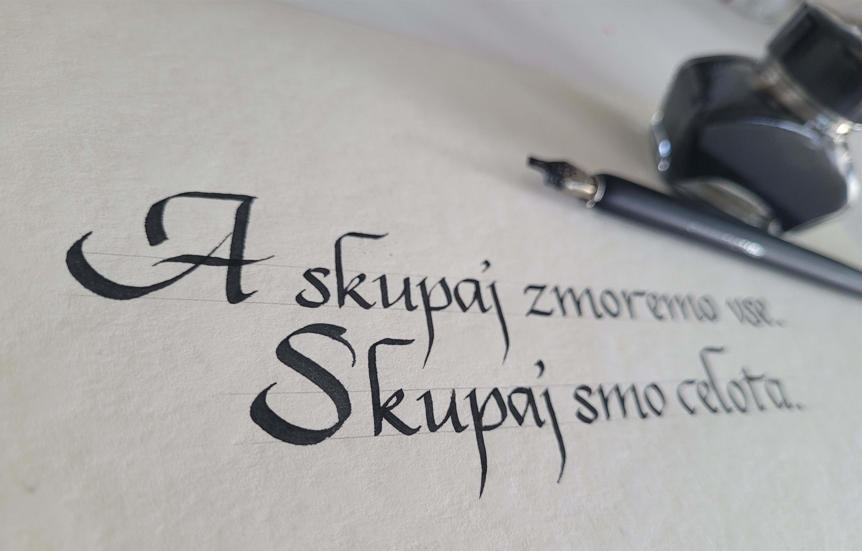 A skupaj zmoremo vse.
Skupaj smo celota.